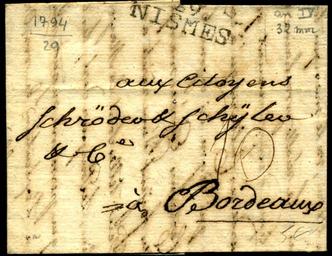 1794
29
29
NISMES
an IV
32 mm
aux Citoyens
Schröder & Schÿler
& Cie
10
à Bordeaux